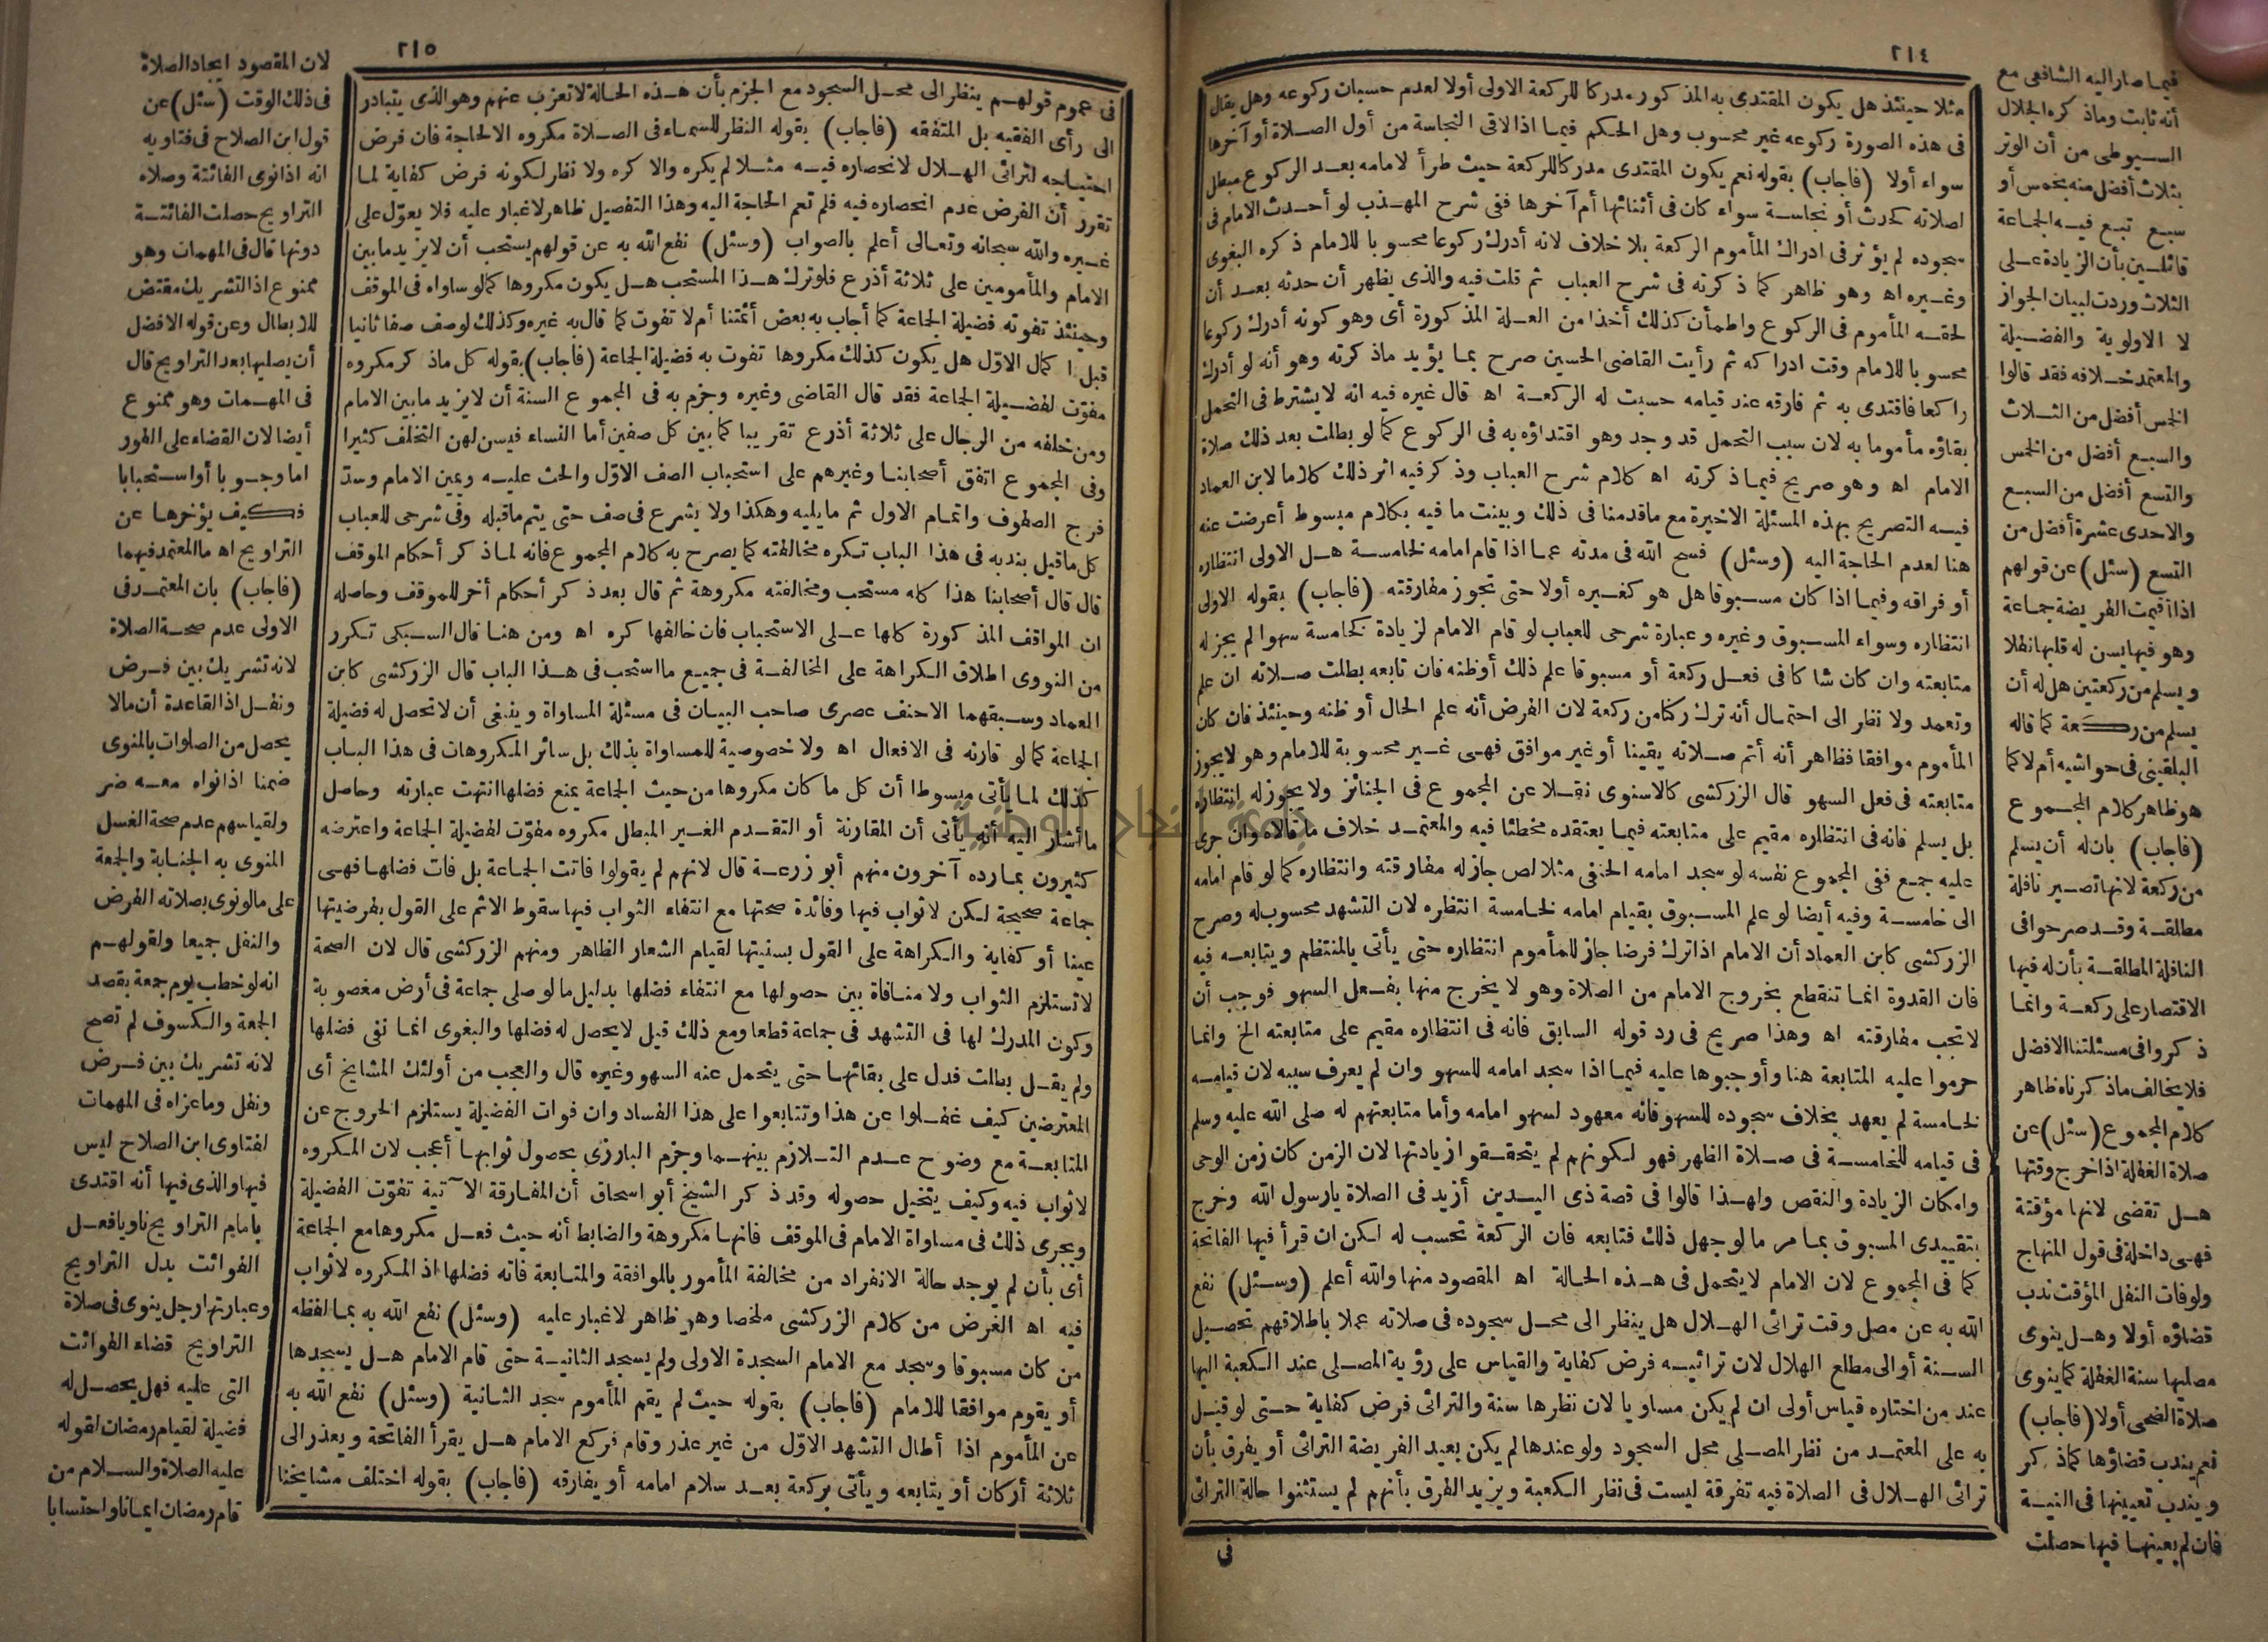 ٢١٤
مثلا حينئذ هل يكون المقتدى به المذكور مدركا للركعة الاولى أولا لعدم حسبان ركوعه وهل يقال
فى هذه الصورة ركوعه غير محسوب وهل الحكم فيما اذا لاقى النجاسة من أول الصلاة أو آخرها
سواء أولا (فأجاب) بقوله نعم يكون المقتدى مدركا للركعة حيث طرأ لامامه بعد الركوع مبطل
لصلاته كحدث أو نجاسة سواء كان فى أثنائها أم آخرها ففى شرح المهذب لو أحدث الامام فى
سجوده لم يؤثر فى ادراك المأموم الركعة بلا خلاف لانه أدرك ركوعا محسوبا للامام ذكره البغوى
وغيره اه وهو ظاهر كما ذكرته فى شرح العباب ثم قلت فيه والذى يظهر أن حدثه بعد أن
لحقه المأموم فى الركوع واطمأن كذلك أخذا من العلة المذكورة أى وهو كونه أدرك ركوعا
محسوبا للامام وقت ادراكه ثم رأيت القاضى الحسين صرح بما يؤيد ماذكرته وهو أنه لو أدرك
راكعا فاقتدى به ثم فارقه عند قيامه حسبت له الركعة اه قال غيره فيه انه لايشترط فى التحمل
بقاؤه مأموما به لان سبب التحمل قد وجد وهو اقتداؤه به فى الركوع كما لو بطلت بعد ذلك صلاة
الامام اه وهو صريح فيما ذكرته اه كلام شرح العباب وذكر فيه اثر ذلك كلاما لابن العماد
فيه التصريح بهذه المسئلة الاخيرة مع ماقدمنا فى ذلك وبينت ما فيه بكلام مبسوط أعرضت عنه
هنا لعدم الحاجة اليه (وسئل) فسح الله فى مدته عما اذا قام امامه لخامسة هل الاولى انتظاره
أو فراقه وفيما اذا كان مسبوقا هل هو كغيره أولا حتى تجوز مفارقته (فأجاب) بقوله الاولى
انتظاره وسواء المسبوق وغيره وعبارة شرحى للعباب لو قام الامام لزيادة كخامسة سهوا لم يجز له
متابعته وان كان شاكا فى فعل ركعة أو مسبوقا علم ذلك أوظنه فان تابعه بطلت صلاته ان علم
وتعمد ولا نظر الى احتمال أنه ترك ركنا من ركعة لان الفرض أنه علم الحال أو ظنه وحينئذ فان كان
المأموم موافقا فظاهر أنه أتم صلاته يقينا أو غير موافق فهى غير محسوبة للامام وهو لايجوز
متابعته فى فعل السهو قال الزركشى كالاسنوى نقلا عن المجموع فى الجنائز ولا يجوز له انتظاره
بل يسلم فانه فى انتظاره مقيم على متابعته فيما يعتقده مخطئا فيه والمعتمد خلاف ما قالاه وان جرى
عليه جمع ففى المجموع نفسه لو سجد امامه الحنفى مثلا لص جاز له مفارقته وانتظاره كما لو قام امامه
الى خامسة وفيه أيضا لو علم المسبوق بقيام امامه لخامسة انتظره لان التشهد محسوب له وصرح
الزركشى كابن العماد أن الامام اذا ترك فرضا جاز للمأموم انتظاره حتى يأتى بالمنتظم ويتابعه فيه
فان القدوة انما تنقطع بخروج الامام من الصلاة وهو لا يخرج منها بفعل السهو فوجب أن
لاتجب مفارقته اه وهذا صريح فى رد قوله السابق فانه فى انتظاره مقيم على متابعته الخ وانما
حرموا عليه المتابعة هنا وأوجبوها عليه فيما اذا سجد امامه للسهو وان لم يعرف سببه لان قيامه
لخامسة لم يعهد بخلاف سجوده للسهو فانه معهود لسهو امامه وأما متابعتهم له صلى الله عليه وسلم
فى قيامه للخامسة فى صلاة الظهر فهو لكونهم لم يتحققوا زيادتها لان الزمن كان زمن الوحى
وامكان الزيادة والنقص ولهذا قالوا فى قصة ذى اليدين أزيد فى الصلاة يارسول الله وخرج
بتقييدى المسبوق بما مر مالو جهل ذلك فتابعه فان الركعة تحسب له لكن ان قرأ فيها الفاتحة
كما فى المجموع لان الامام لايتحمل فى هذه الحالة اه المقصود منها والله أعلم (وسئل) نفع
الله به عن مصل وقت ترائى الهلال هل ينظر الى محل سجوده فى صلاته عملا باطلاقهم تحصيل
السنة أو الى مطلع الهلال لان ترائيه فرض كفاية والقياس على رؤية المصلى عند الكعبة اليها
عند من اختاره قياس أولى ان لم يكن مساويا لان نظرها سنة والترائى فرض كفاية حتى لو قيل
به على المعتمد من نظر المصلى محل السجود ولو عندها لم يكن بعيد الفريضة الترائى أو يفرق بأن
ترائى الهلال فى الصلاة فيه تفرقة ليست فى نظر الكعبة ويزيد الفرق بأنهم لم يستثنوا حالة الترائى
فى
فيما صار اليه الشافعى مع
أنه ثابت وماذكره الجلال
السيوطى من أن الوتر
بثلاث أفضل منه بخمس أو
سبع تبع فيه الجماعة
قائلين بأن الزيادة على
الثلاث وردت لبيان الجواز
لا الاولوية والفضيلة
والمعتمد خلافه فقد قالوا
الخمس أفضل من الثلاث
والسبع أفضل من الخمس
والتسع أفضل من السبع
والاحدى عشرة أفضل من
التسع (سئل) عن قولهم
اذا أقيمت الفريضة جماعة
وهو فيها يسن له قلبها نفلا
ويسلم من ركعتين هل له أن
يسلم من ركعة كما قاله
البلقينى فى حواشيه أم لا كما
هو ظاهر كلام المجموع
(فأجاب) بان له أن يسلم
من ركعة لانها تصير نافلة
مطلقة وقد صرحوا فى
النافلة المطلقة بأن له فيها
الاقتصار على ركعة وانما
ذكروا فى مسئلتنا الافضل
فلا يخالف ماذكرناه ظاهر
كلام المجموع (سئل) عن
صلاة الغفلة اذا خرج وقتها
هل تقضى لانها مؤقتة
فهى داخلة فى قول المنهاج
ولو فات النفل المؤقت ندب
قضاؤه أولا وهل ينوى
مصليها سنة الغفلة كما ينوى
صلاة الضحى أولا (فأجاب)
نعم يندب قضاؤها كما ذكر
ويندب تعيينها فى النية
فان لم يعينها فيها حصلت
٢١٥
فى عموم قولهم ينظر الى محل السجود مع الجزم بأن هذه الحالة لا تعزب عنهم وهو الذى يتبادر
الى رأى الفقيه بل المتفقه (فأجاب) بقوله النظر للسماء فى الصلاة مكروه الا لحاجة فان فرض
احتياجه لترائى الهلال لانحصاره فيه مثلا لم يكره والا كره ولا نظر لكونه فرض كفاية لما
تقرر أن الفرض عدم انحصاره فيه فلم تعم الحاجة اليه وهذا التفصيل ظاهر لاغبار عليه فلا يعوّل على
غيره والله سبحانه وتعالى أعلم بالصواب (وسئل) نفع الله به عن قولهم يستحب أن لا يزيد مابين
الامام والمأمومين على ثلاثة أذرع فلو ترك هذا المستحب هل يكون مكروها كما لو ساواه فى الموقف
وحينئذ تفوته فضيلة الجماعة كما أجاب به بعض أئمتنا أم لا تفوت كما قال به غيره وكذلك لوصف صفا ثانيا
قبل اكمال الاوّل هل يكون كذلك مكروها تفوت به فضيلة الجماعة (فأجاب) بقوله كل ماذكر مكروه
مفوّت لفضيلة الجماعة فقد قال القاضى وغيره وجزم به فى المجموع السنة أن لايزيد مابين الامام
ومن خلفه من الرجال على ثلاثة أذرع تقريبا كما بين كل صفين أما النساء فيسن لهن التخلف كثيرا
وفى المجموع اتفق أصحابنا وغيرهم على استحباب الصف الاوّل والحث عليه ويمين الامام وسدّ
فرج الصفوف واتمام الاول ثم مايليه وهكذا ولا يشرع فى صف حتى يتم ماقبله وفى شرحى للعباب
كل ماقيل بندبه فى هذا الباب تكره مخالفته كما يصرح به كلام المجموع فانه لما ذكر أحكام الموقف
قال قال أصحابنا هذا كله مستحب ومخالفته مكروهة ثم قال بعد ذكر أحكام أخر للموقف وحاصله
ان المواقف المذكورة كلها على الاستحباب فان خالفها كره اه ومن هنا قال السبكى تكرر
من النووى اطلاق الكراهة على المخالفة فى جميع مااستحب فى هذا الباب قال الزركشى كابن
العماد وسبقهما الاحنف عصرى صاحب البيان فى مسئلة المساواة وينبغى أن لاتحصل له فضيلة
الجماعة كما لو قارنه فى الافعال اه ولا خصوصية للمساواة بذلك بل سائر المكروهات فى هذا الباب
كذلك لما يأتى مبسوطا أن كل ما كان مكروها من حيث الجماعة يمنع فضلها انتهت عبارته وحاصل
ماأشار اليه أنه يأتى أن المقارنة أو التقدم الغير المبطل مكروه مفوّت لفضيلة الجماعة واعترضه
كثيرون بما رده آخرون منهم أبو زرعة قال لانهم لم يقولوا فاتت الجماعة بل فات فضلها فهى
جماعة صحيحة لكن لاثواب فيها وفائدة صحتها مع انتفاء الثواب فيها سقوط الاثم على القول بفرضيتها
عينا أو كفاية والكراهة على القول بسنيتها لقيام الشعار الظاهر ومنهم الزركشى قال لان الصحة
لاتستلزم الثواب ولا منافاة بين حصولها مع انتفاء فضلها بدليل مالو صلى جماعة فى أرض مغصوبة
وكون المدرك لها فى التشهد فى جماعة قطعا ومع ذلك قيل لايحصل له فضلها والبغوى انما نفى فضلها
ولم يقل بطلت فدل على بقائها حتى يتحمل عنه السهو وغيره قال والعجب من أولئك المشايخ أى
المعترضين كيف غفلوا عن هذا وتتابعوا على هذا الفساد وان فوات الفضيلة يستلزم الخروج عن
المتابعة مع وضوح عدم التلازم بينهما وجزم البارزى بحصول ثوابها أعجب لان المكروه
لاثواب فيه وكيف يتخيل حصوله وقد ذكر الشيخ أبو اسحاق أن المفارقة الآتية تفوّت الفضيلة
ويجرى ذلك فى مساواة الامام فى الموقف فانها مكروهة والضابط أنه حيث فعل مكروها مع الجماعة
أى بأن لم يوجد حالة الانفراد من مخالفة المأمور بالموافقة والمتابعة فاته فضلها اذ المكروه لاثواب
فيه اه الغرض من كلام الزركشى ملخصا وهو ظاهر لاغبار عليه (وسئل) نفع الله به بما لفظه
من كان مسبوقا وسجد مع الامام السجدة الاولى ولم يسجد الثانية حتى قام الامام هل يسجدها
أو يقوم موافقا للامام (فأجاب) بقوله حيث لم يقم المأموم سجد الثانية (وسئل) نفع الله به
عن المأموم اذا أطال التشهد الاوّل من غير عذر وقام فركع الامام هل يقرأ الفاتحة ويعذر الى
ثلاثة أركان أو يتابعه ويأتى بركعة بعد سلام امامه أو يفارقه (فأجاب) بقوله اختلف مشايخنا
لان المقصود ايجاد الصلاة
فى ذلك الوقت (سئل) عن
قول ابن الصلاح فى فتاويه
انه اذا نوى الفائتة وصلاة
التراويح حصلت الفائتة
دونها قال فى المهمات وهو
ممنوع اذ التشريك مقتض
للابطال وعن قوله الافضل
أن يصليها بعد التراويح قال
فى المهمات وهو ممنوع
أيضا لان القضاء على الفور
اما وجوبا أو استحبابا
فكيف يؤخرها عن
التراويح اه ما المعتمد فيهما
(فأجاب) بان المعتمد فى
الاولى عدم صحة الصلاة
لانه تشريك بين فرض
ونفل اذ القاعدة أن مالا
يحصل من الصلوات بالمنوى
ضمنا اذا نواه معه ضر
ولقياسهم عدم صحة الغسل
المنوى به الجنابة والجمعة
على مالو نوى بصلاته الفرض
والنفل جميعا ولقولهم
انه لو خطب يوم جمعة بقصد
الجمعة والكسوف لم تصح
لانه تشريك بين فرض
ونفل وما عزاه فى المهمات
لفتاوى ابن الصلاح ليس
فيها والذى فيها أنه اقتدى
بامام التراويح ناويا فعل
الفوائت بدل التراويح
وعبارتها رجل ينوى فى صلاة
التراويح قضاء الفوائت
التى عليه فهل يحصل له
فضيلة لقيام رمضان لقوله
عليه الصلاة والسلام من
قام رمضان ايمانا واحتسابا